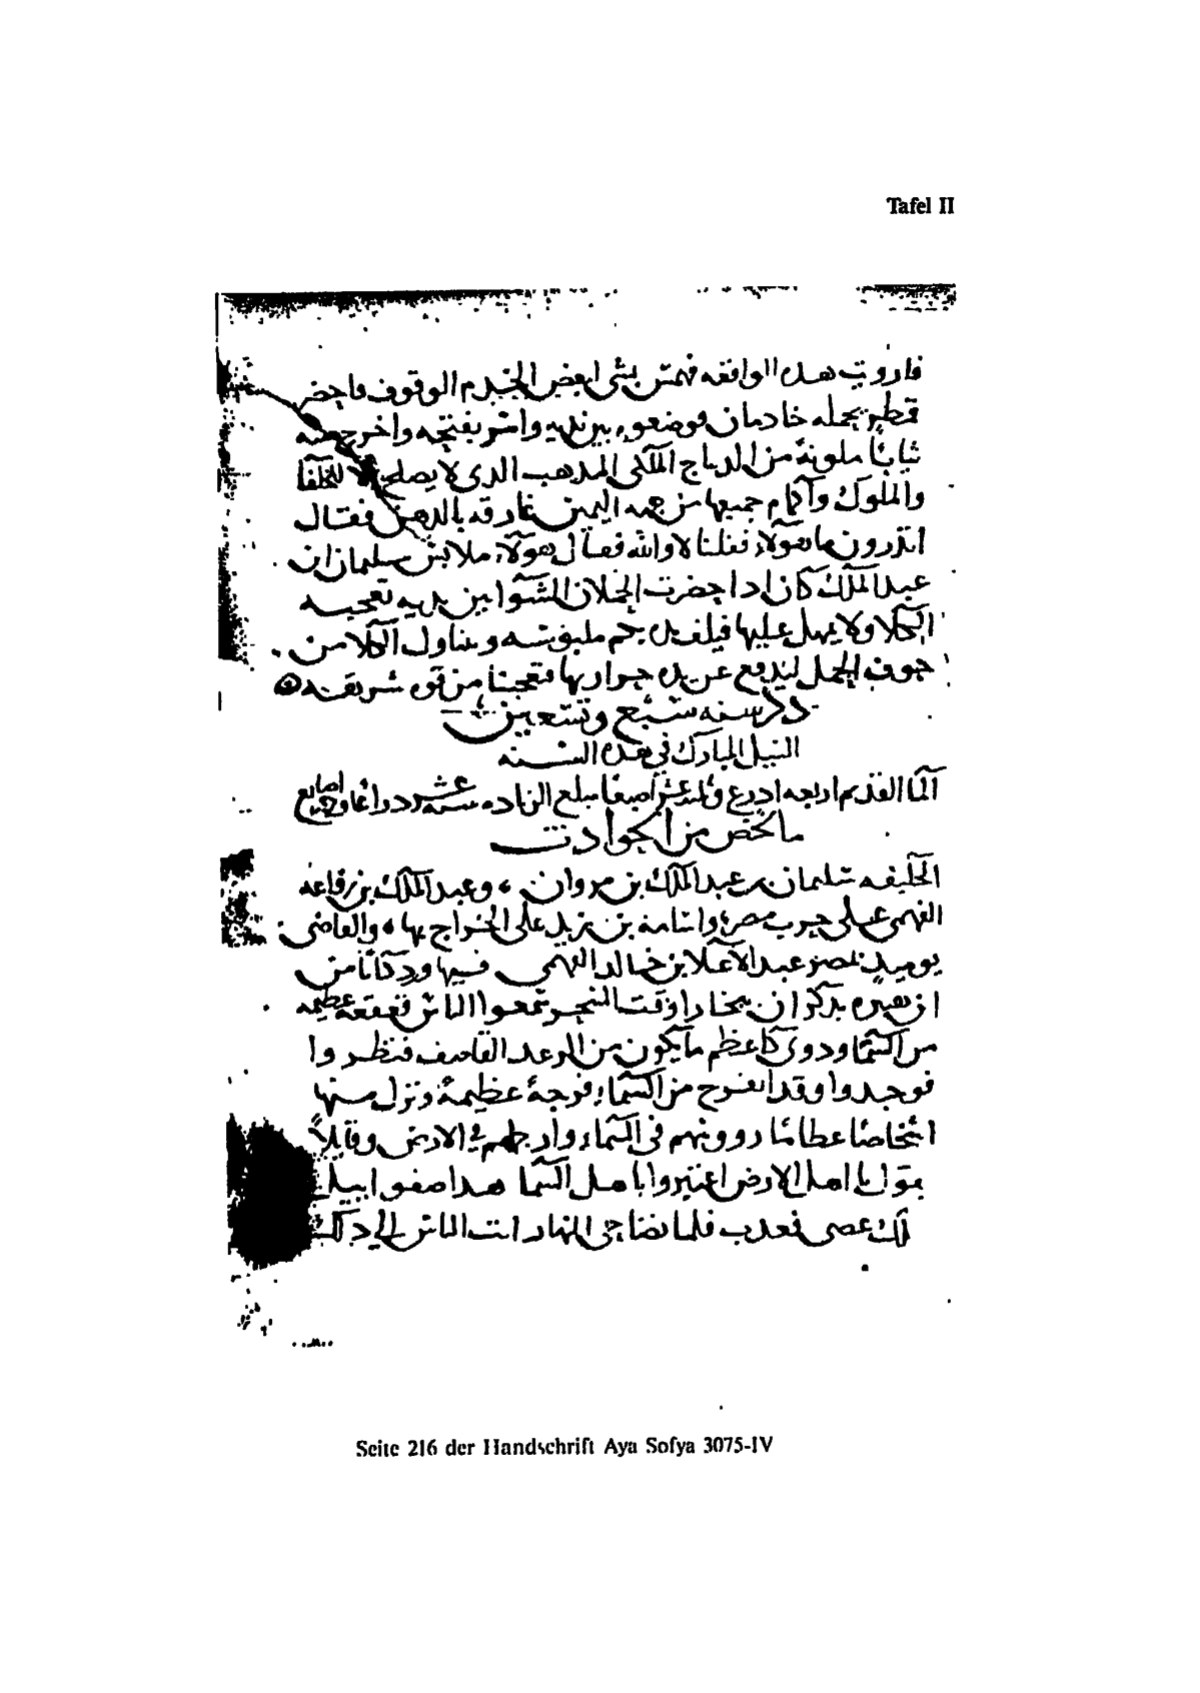 Tafel II
فارويت هذه الواقعه فهمس بشى لبعض الخدم الوقوف فاحضر
قمطر يحمله خادمان فوضعوه بين يديه وامر بفتحه واخرج منه
ثيابًا ملونة من الدباج الملكى المذهب الدى لا يصلح الا للخلفا
والملوك وآكمام جميعها من جهه اليمين غارقه بالدهن فقال
اتدرون ما هولاء فقلنا لا والله فقال هولاء ملابس سليمان ابن
عبد الملك كان ادا حضرت الحملان الشوا بين يديه تعجبه
الكلا ولا يمهل عليها فيلف يده بكم ملبوسه ويتناول الكلا من
جوف الحمل ليدفع عن يده حرارتها فتعجبنا من قوه شر نفسه
ذكر سنه سبع وتسعين
النيل المبارك في هذه السنه
المآ القديم اربعه ادرع وثلثه عشر اصبعا مبلغ الزياده سته عشر دراعا واصابع
ما لخص من الحوادث
الخليفه سليمان بن عبد الملك بن مروان وعبد الملك بن رفاعه
الفهمى على حرب مصر واسامه بن زيد على الخراج بها والقاضى
يوميدٍ بمصر عبد الآعلا بن خالد الفهمى فيها ورد كتابًا من
ارمينيه يذكر ان بخارا وقت السحر سمعوا الناس قعقعه عظيمه
من السمآ ودوى كاعظم ما يكون من الرعد القاصف فنظروا
فوجدوا وقد انفرج من السماء فرجة عظيمة ونزل منها
اشخاصًا عظامًا رووسهم فى السماء وارجلهم في الارض وقايلاً
يقول يا اهل الارض اعتبروا باهل السمآ هدا صفوابيل
ملك عصى فعدب فلما اضا حى النهار اتت الناس الى دلك
Seite 216 der Handschrift Aya Sofya 3075-IV